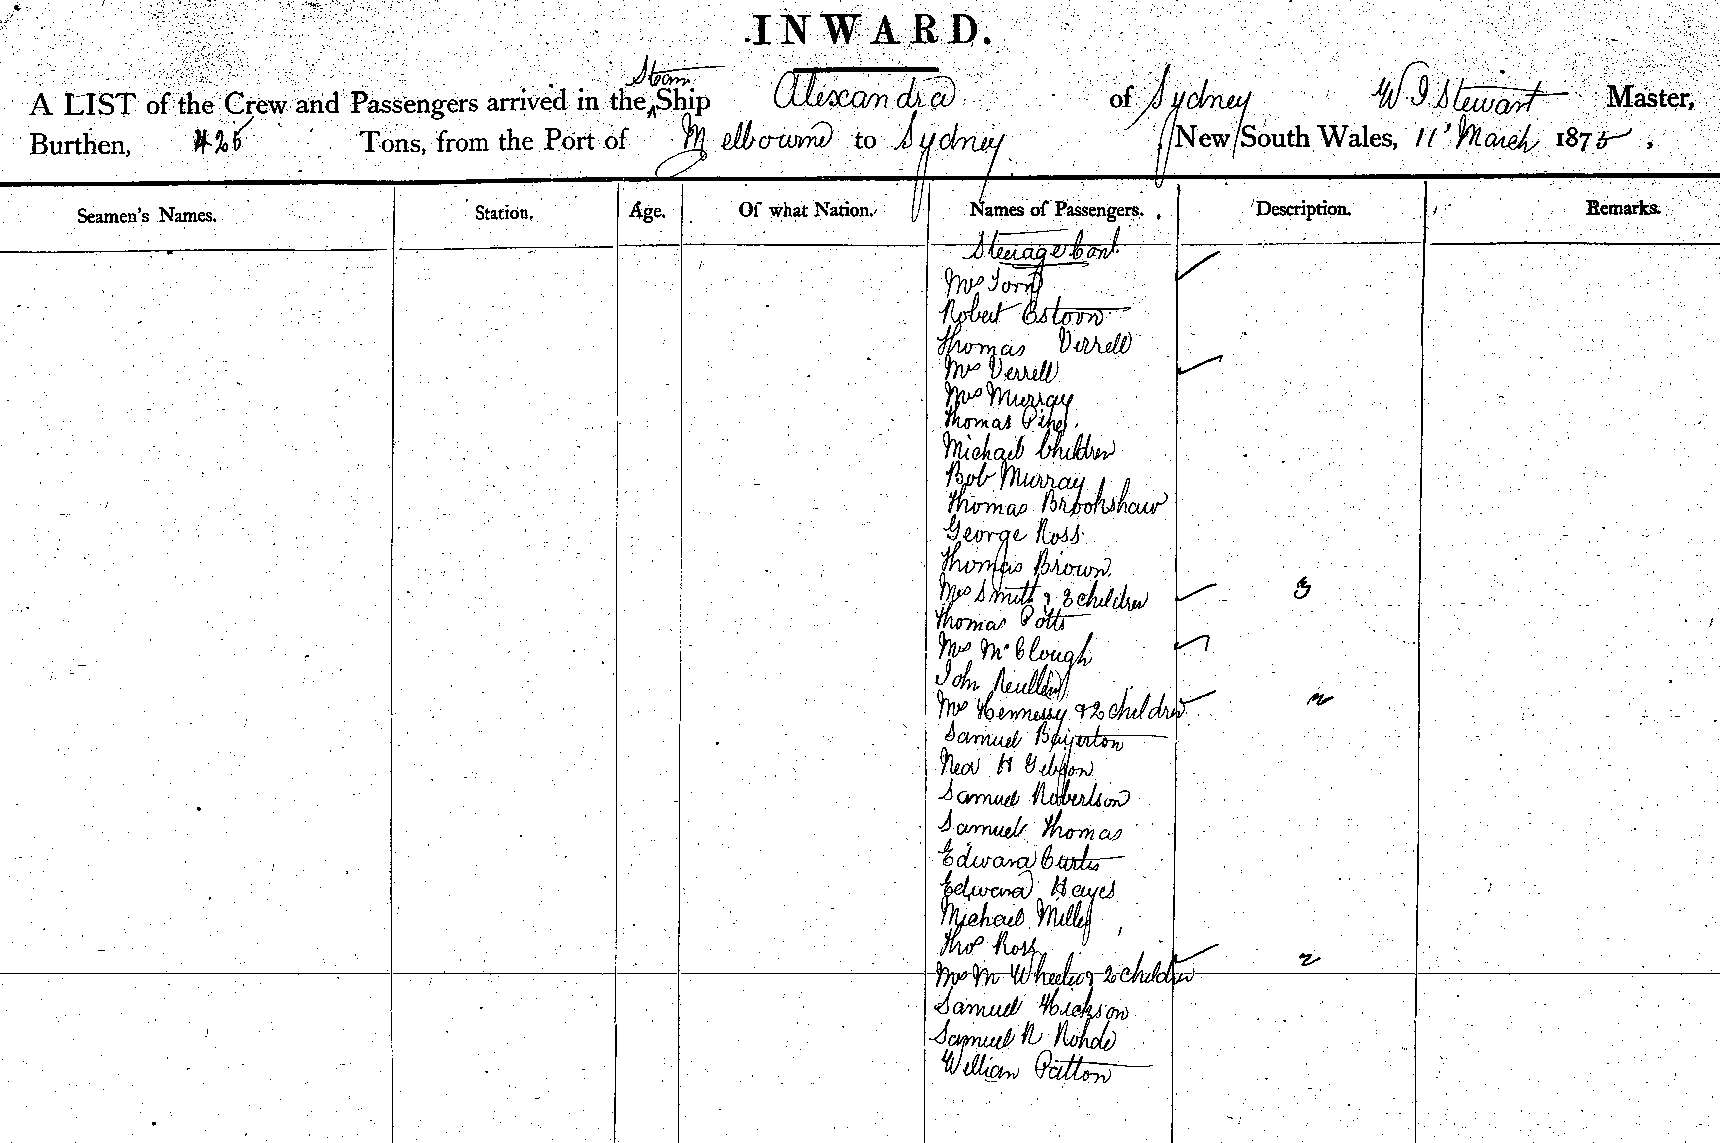 INWARD.
A LIST of the Crew and Passengers arrived in the Steam Ship Alexandra of Sydney W J Stewart Master,
Burthen, 425 Tons, from the Port of Melbourne to Sydney New South Wales, 11' March 1875.
Seamen's Names. Station. Age. Of what Nation. Names of Passengers. Description. Remarks.
Steerage Cont.
Mrs
Robert
Thomas Verrell
Mrs Verrell
Mrs Murray
Thomas
Michael Children
Bob Murray
Thomas Brookshaw
George Ross
Thomas Brown
Mrs Smith & 3 children 3
Thomas Potts
Mrs McClough
John
Mrs Hennessy & 2 children 2
Samuel
H Gibson
Samuel Robertson
Samuel Thomas
Edward Curtis
Edward Hayes
Michael Miller
Thos Ross
Mrs M Wheeler & 2 children 2
Samuel Hickson
Samuel R Rohde
William Patton